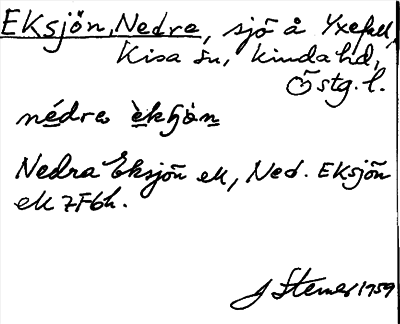 Eksjön, Nedra, sjö å Yxefall,
Kisa sn, Kinda hd,
Östg. l.
nédra èkʃòn
Nedra Eksjön ek, Ned. Eksjön
ek 7F6h.
J Stenes 1959